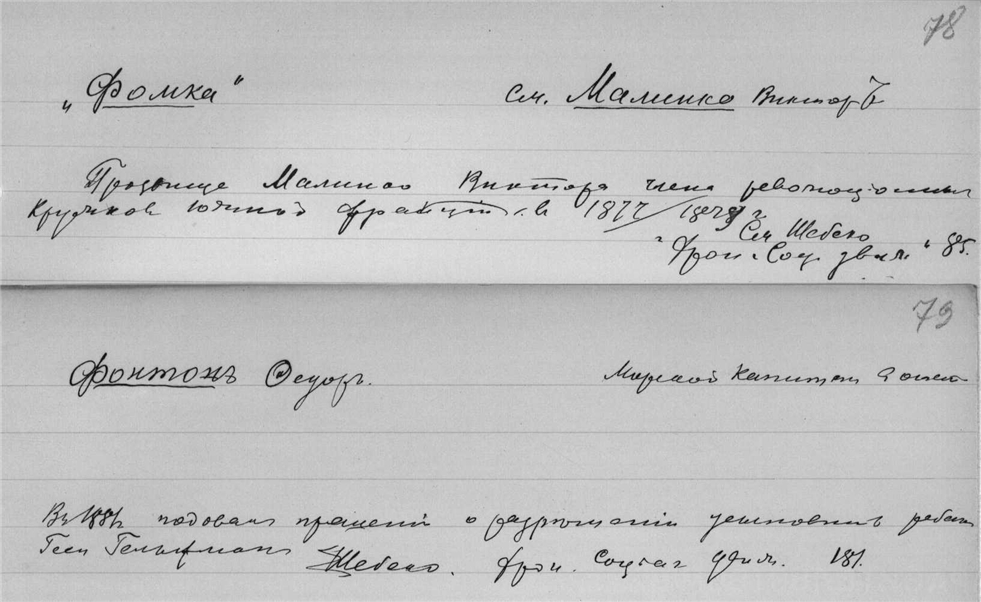 78
„Фомка“ См. Малинка Викторъ
Прозвище Малинка Виктора члена революціонныхъ
кружковъ южной фракціи въ 1877/1878 г
См Шебеко
"Хрон. Соц. движ." 85.
79
Фонтонъ Ѳедоръ. Морской Капитан
Въ 1881 г подавалъ прошеніе о разрѣшеніи усыновить ребенка
Геси Гельфманъ Шебеко. Хрон. Соціал движ. 181.